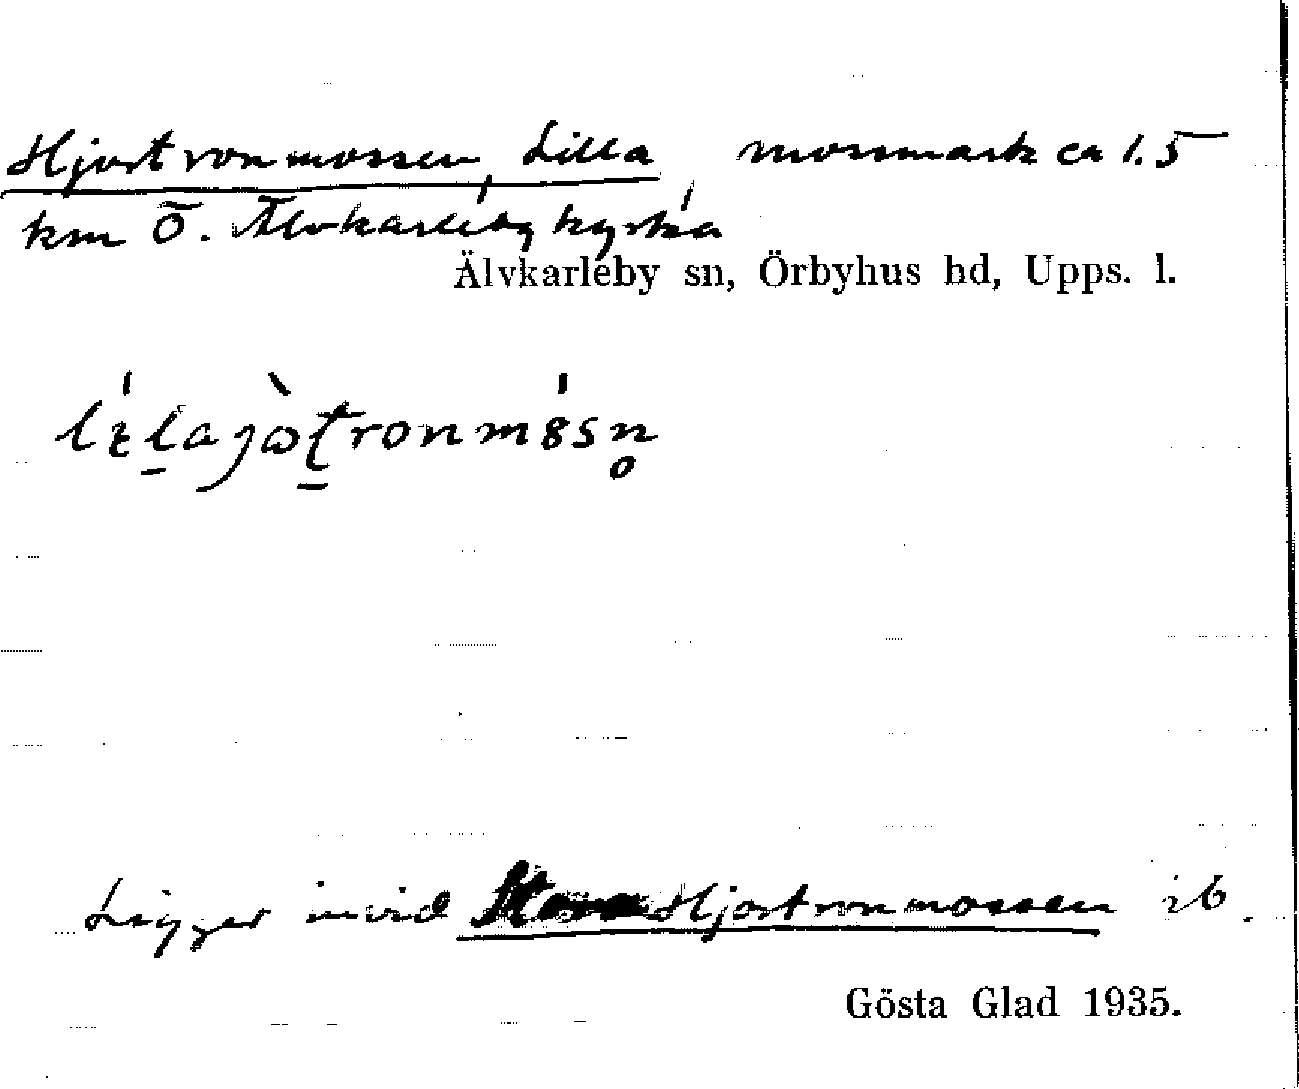 Hjortronmossen, Lilla mossmark ca 1.5
km Ö. Älvkarleby kyrka
Älvkarleby sn, Örbyhus hd, Upps. l.
Ligger invid Stora Hjortronmossen ib.
Gösta Glad 1935.